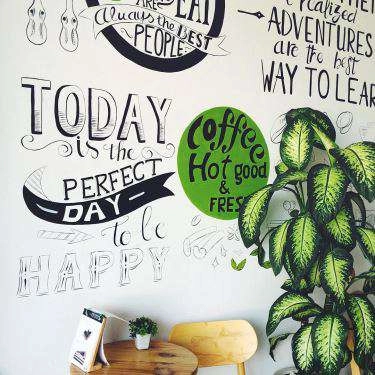 ARE
EAT
Always the BEST
PEOPLE
realized
ADVENTURES
are the best
WAY TO LEAR
TODAY
is the
PERFECT
DAY
to be
HAPPY
Coffee
Hot good
&
FRES